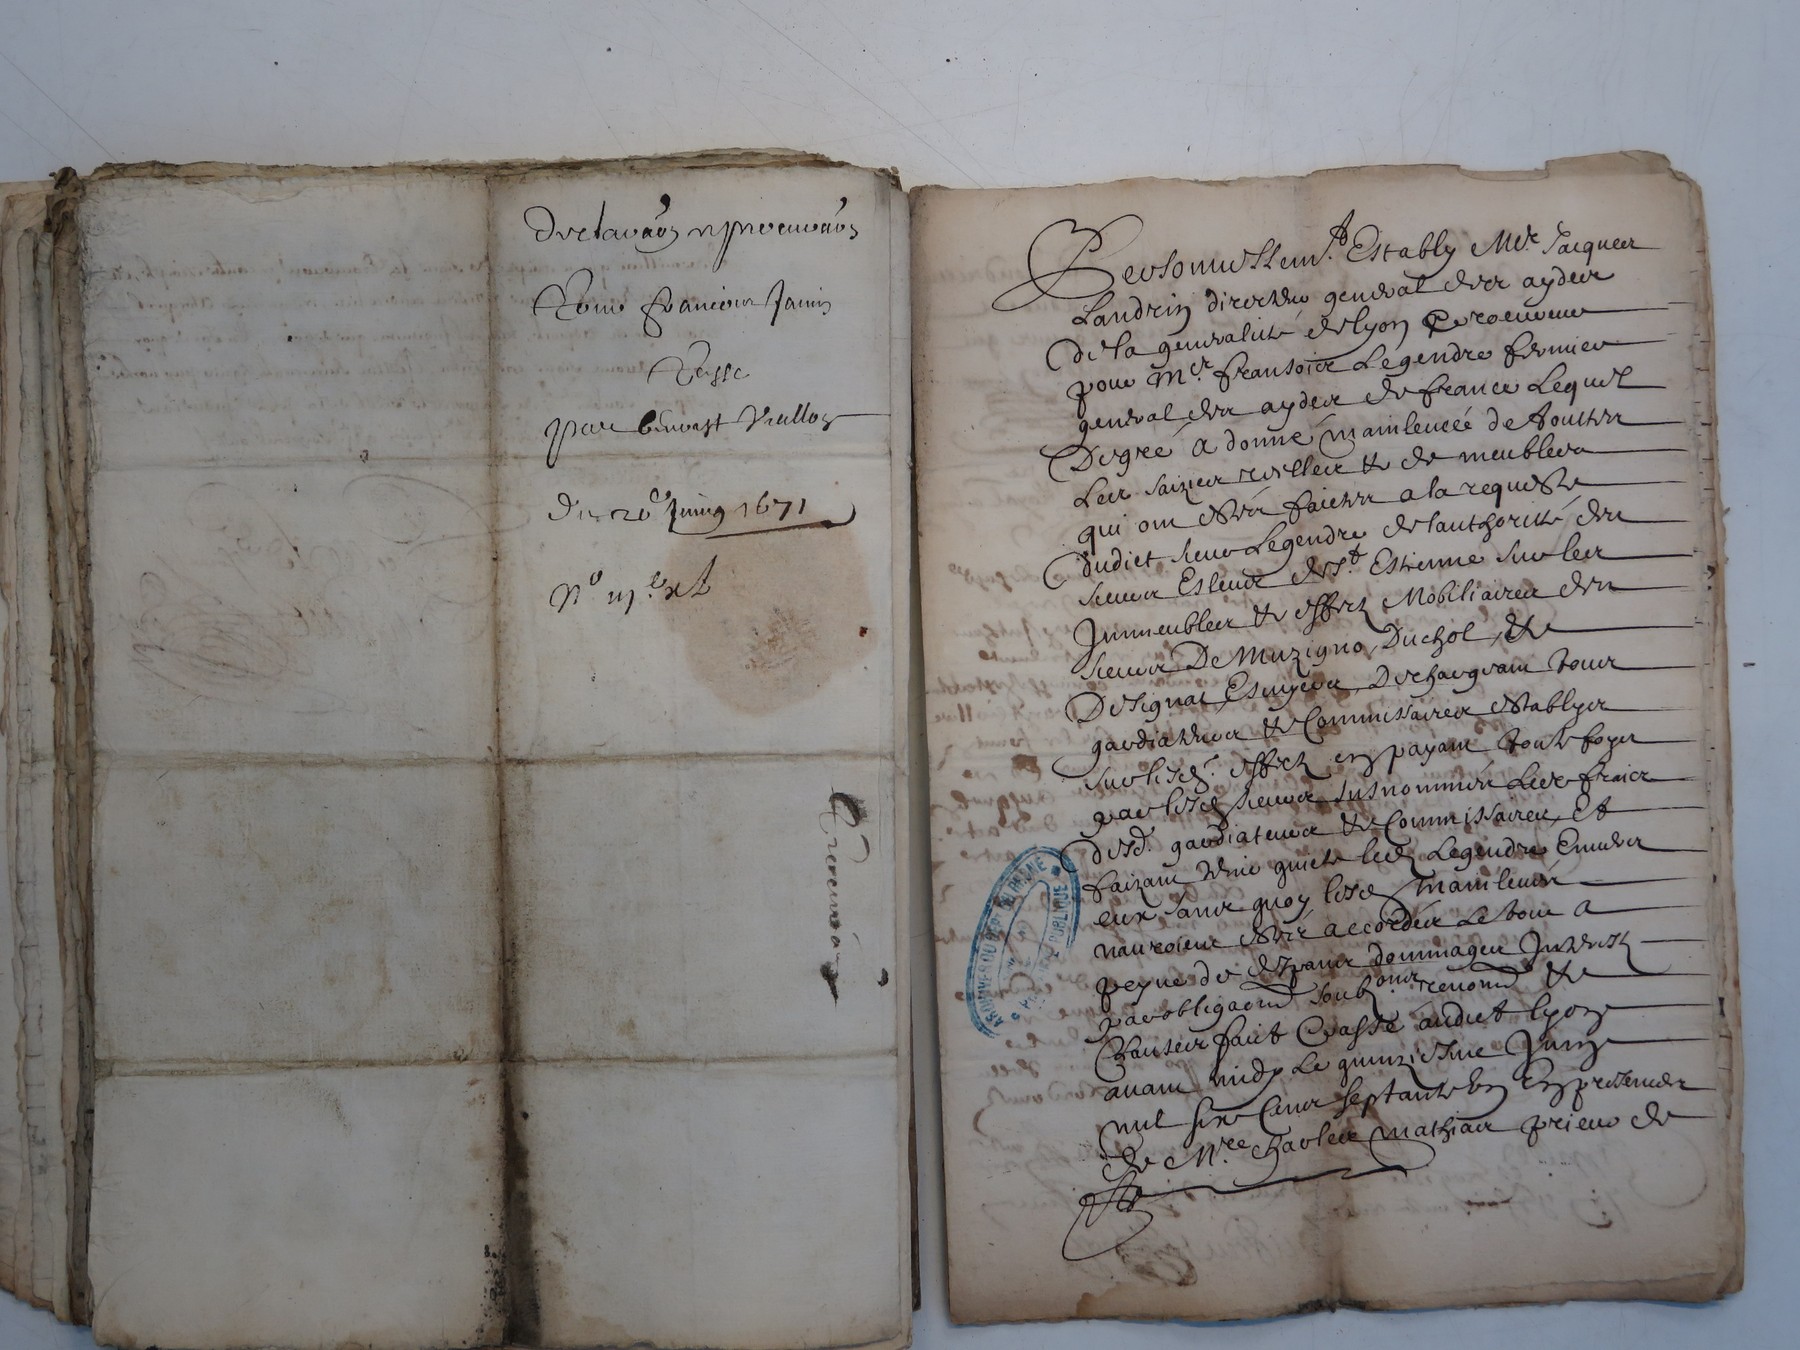 Declara͠on et procura͠on
Pour francois Janin
Passé
par benoist Viallon
Du 26e Juing 1671
Personnellemt. Estably Mre. Jacques
Landrin directeur general des aydes
de la generalité de lyon Procureur
pour Mer. fransois Legendre fermier
general des aydes de france Lequel
De gré A donné mainleuéé de touttes
Les saizies reelles et de meubles
qui ont estéé faictes a la requeste
dudict sieur Legendre de lauthorité des
sieurs Esleus de St. Estienne sur les
Immeubles et effectz Mobiliaires des
sieurs De Muzigno, Duchol, et
Designat, Escuyers, Deschargeant tous
gardiateurs et Commissaires establys
sur lesd. effectz en payant toutefoys
par lesd sieurs susnommés Les fraicz
desd. gardiateurs et Commissaires, Et
faizant tenir quicte led Legendre Enuers
eux sans quoy lesd mainleueés
nauroient estéé accordéés Le tout A
peyne de despans dommages Interestz
par obliga͠ons soubzons. renon͠ons et
Clauses faict et passé audict lyon
auant midy Le quinziesme Juing
mil six Cens septante Un En presences
de Mre. Charles Mathias prieur de
ARCHIVES DU DEPT DU RHONE
PUBLIQUE